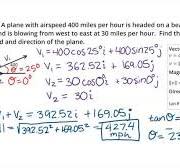 A plane with airspeed 400 miles per hour is headed on a bea
nd is blowing from west to east at 30 miles per hour. Find th
d and direction of the plane.
V₁ = 400cos25°i + 400sin25°j
V₁ = 362.52i + 169.05j
θ = 25°
θ = 0°
V₂ = 30cos0°i + 30sin0°j
V₂ = 30i
+ V₂ = 392.52i + 169.05j
= √392.52² + 169.05² = 427.4
mph
Vec
Mag
Dire
tanθ =